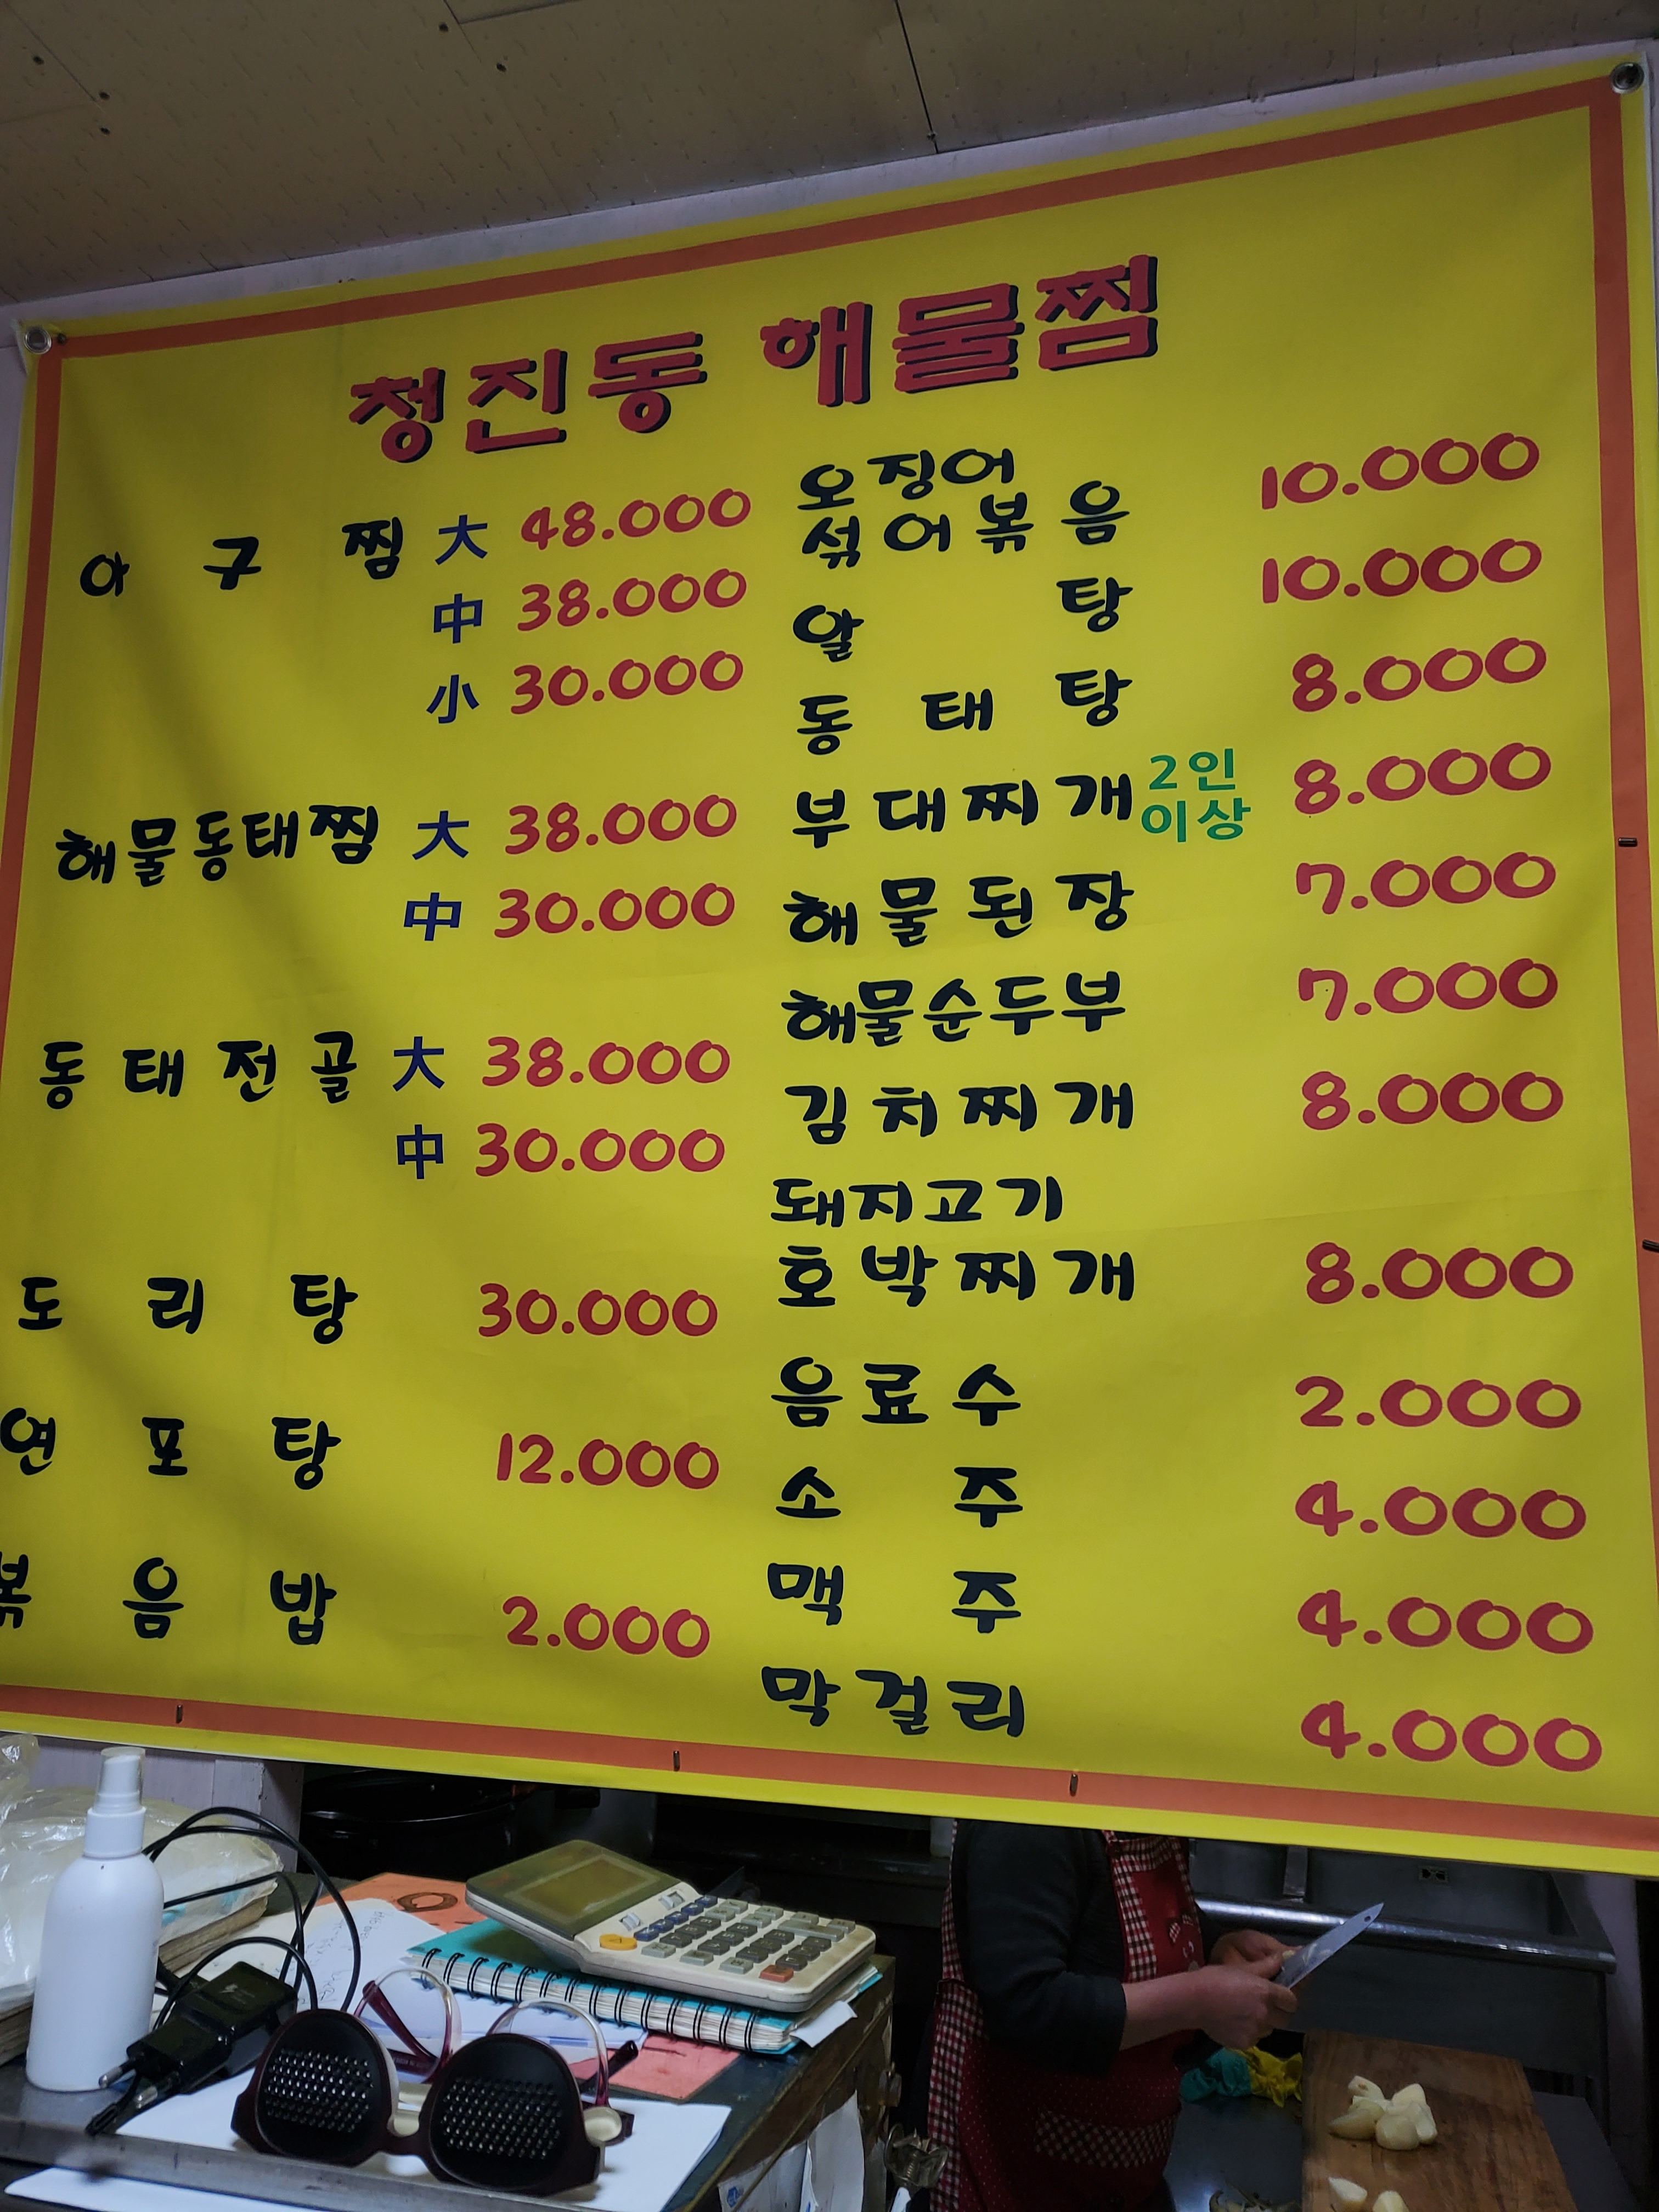 청진동 해물찜
아구찜 大 48.000
中 38.000
小 30.000
해물동태찜 大 38.000
中 30.000
동태전골 大 38.000
中 30.000
도리탕 30.000
연포탕 12.000
볶음밥 2.000
오징어
섞어볶음 10.000
알탕 10.000
동태탕 8.000
부대찌개 2인 이상 8.000
해물된장 7.000
해물순두부 7.000
김치찌개 8.000
돼지고기
호박찌개 8.000
음료수 2.000
소주 4.000
맥주 4.000
막걸리 4.000